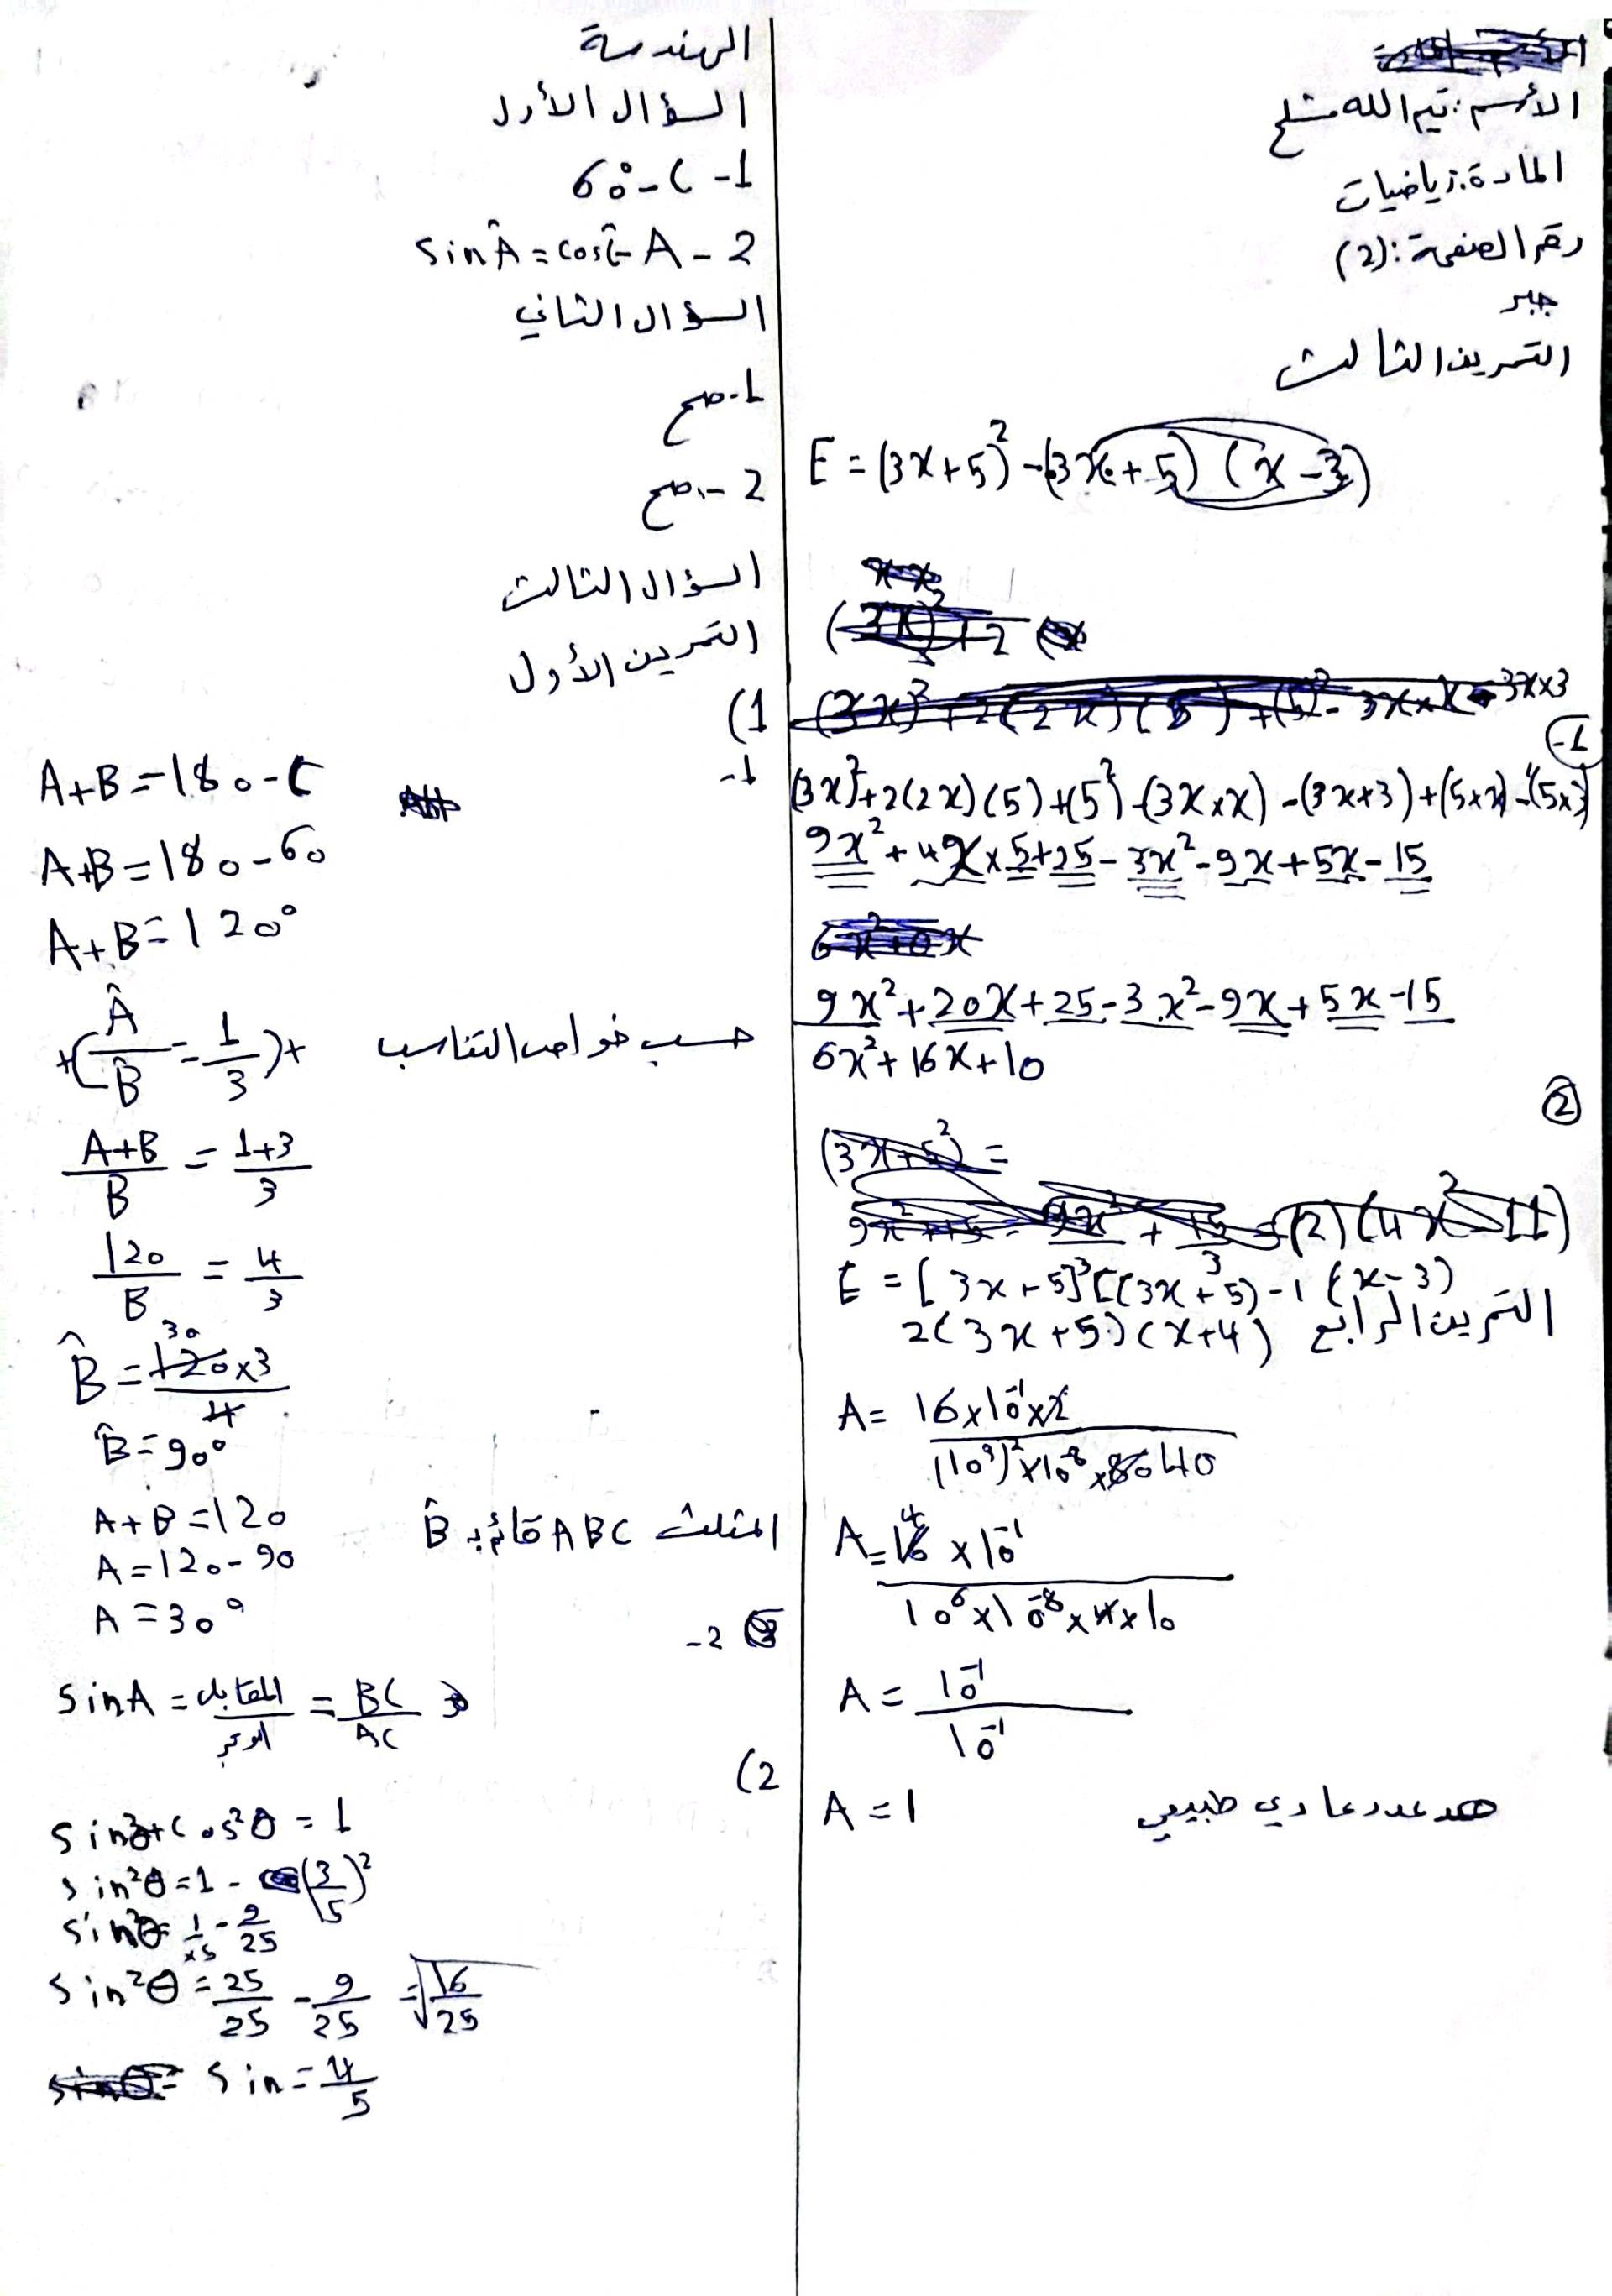 الأسم: تيم الله مشلح
المادة: رياضيات
رقم الصفحة: (2)
جبر
التمرين الثالث
E = (3x+5)² -(3x+5) (x-3)
-1
(3x)²+2(2x)(5)+(5²-(3x×x) -(3x+3)+(5×x)-(5×3)
9x²+4x×5+25-3x²-9x+5x-15
9x²+20x+25-3x²-9x+5x-15
6x²+16x+10
2
E = [3x+5]³[(3x+5)-1(x-3)
2(3x+5)(x+4)
التمرين الرابع
A= 16×10⁻¹×2 / (10³)²×10⁻⁸×80 40
A= 16 4 ×10⁻¹ / 10⁶×10⁻⁸×4×10
A = 10⁻¹ / 10⁻¹
A = 1 عدد عادي طبيعي
الهندسة
السؤال الأول
1- C - 60°
2- A - sinÂ = cosĈ
السؤال الثاني
1- صح
2- صح
السؤال الثالث
التمرين الأول
(1
-1
A+B=180-C
A+B=180-60
A+B=120°
+(Â/B̂ = 1/3)+ حسب خواص التناسب
A+B/B = 1+3/3
120/B = 4/3
B̂ = 120 30 ×3 / 4
B̂=90°
A+B=120
A=120-90
A=30°
المثلث ABC قائم بـ B̂
-2
sinA = المقابل/الوتر = BC/AC
(2
sin²θ+cos²θ = 1
sin²θ=1-(3/5)²
sin²θ= 1/×5 - 9/25
sin²θ = 25/25 - 9/25 = √16/25
sin = 4/5